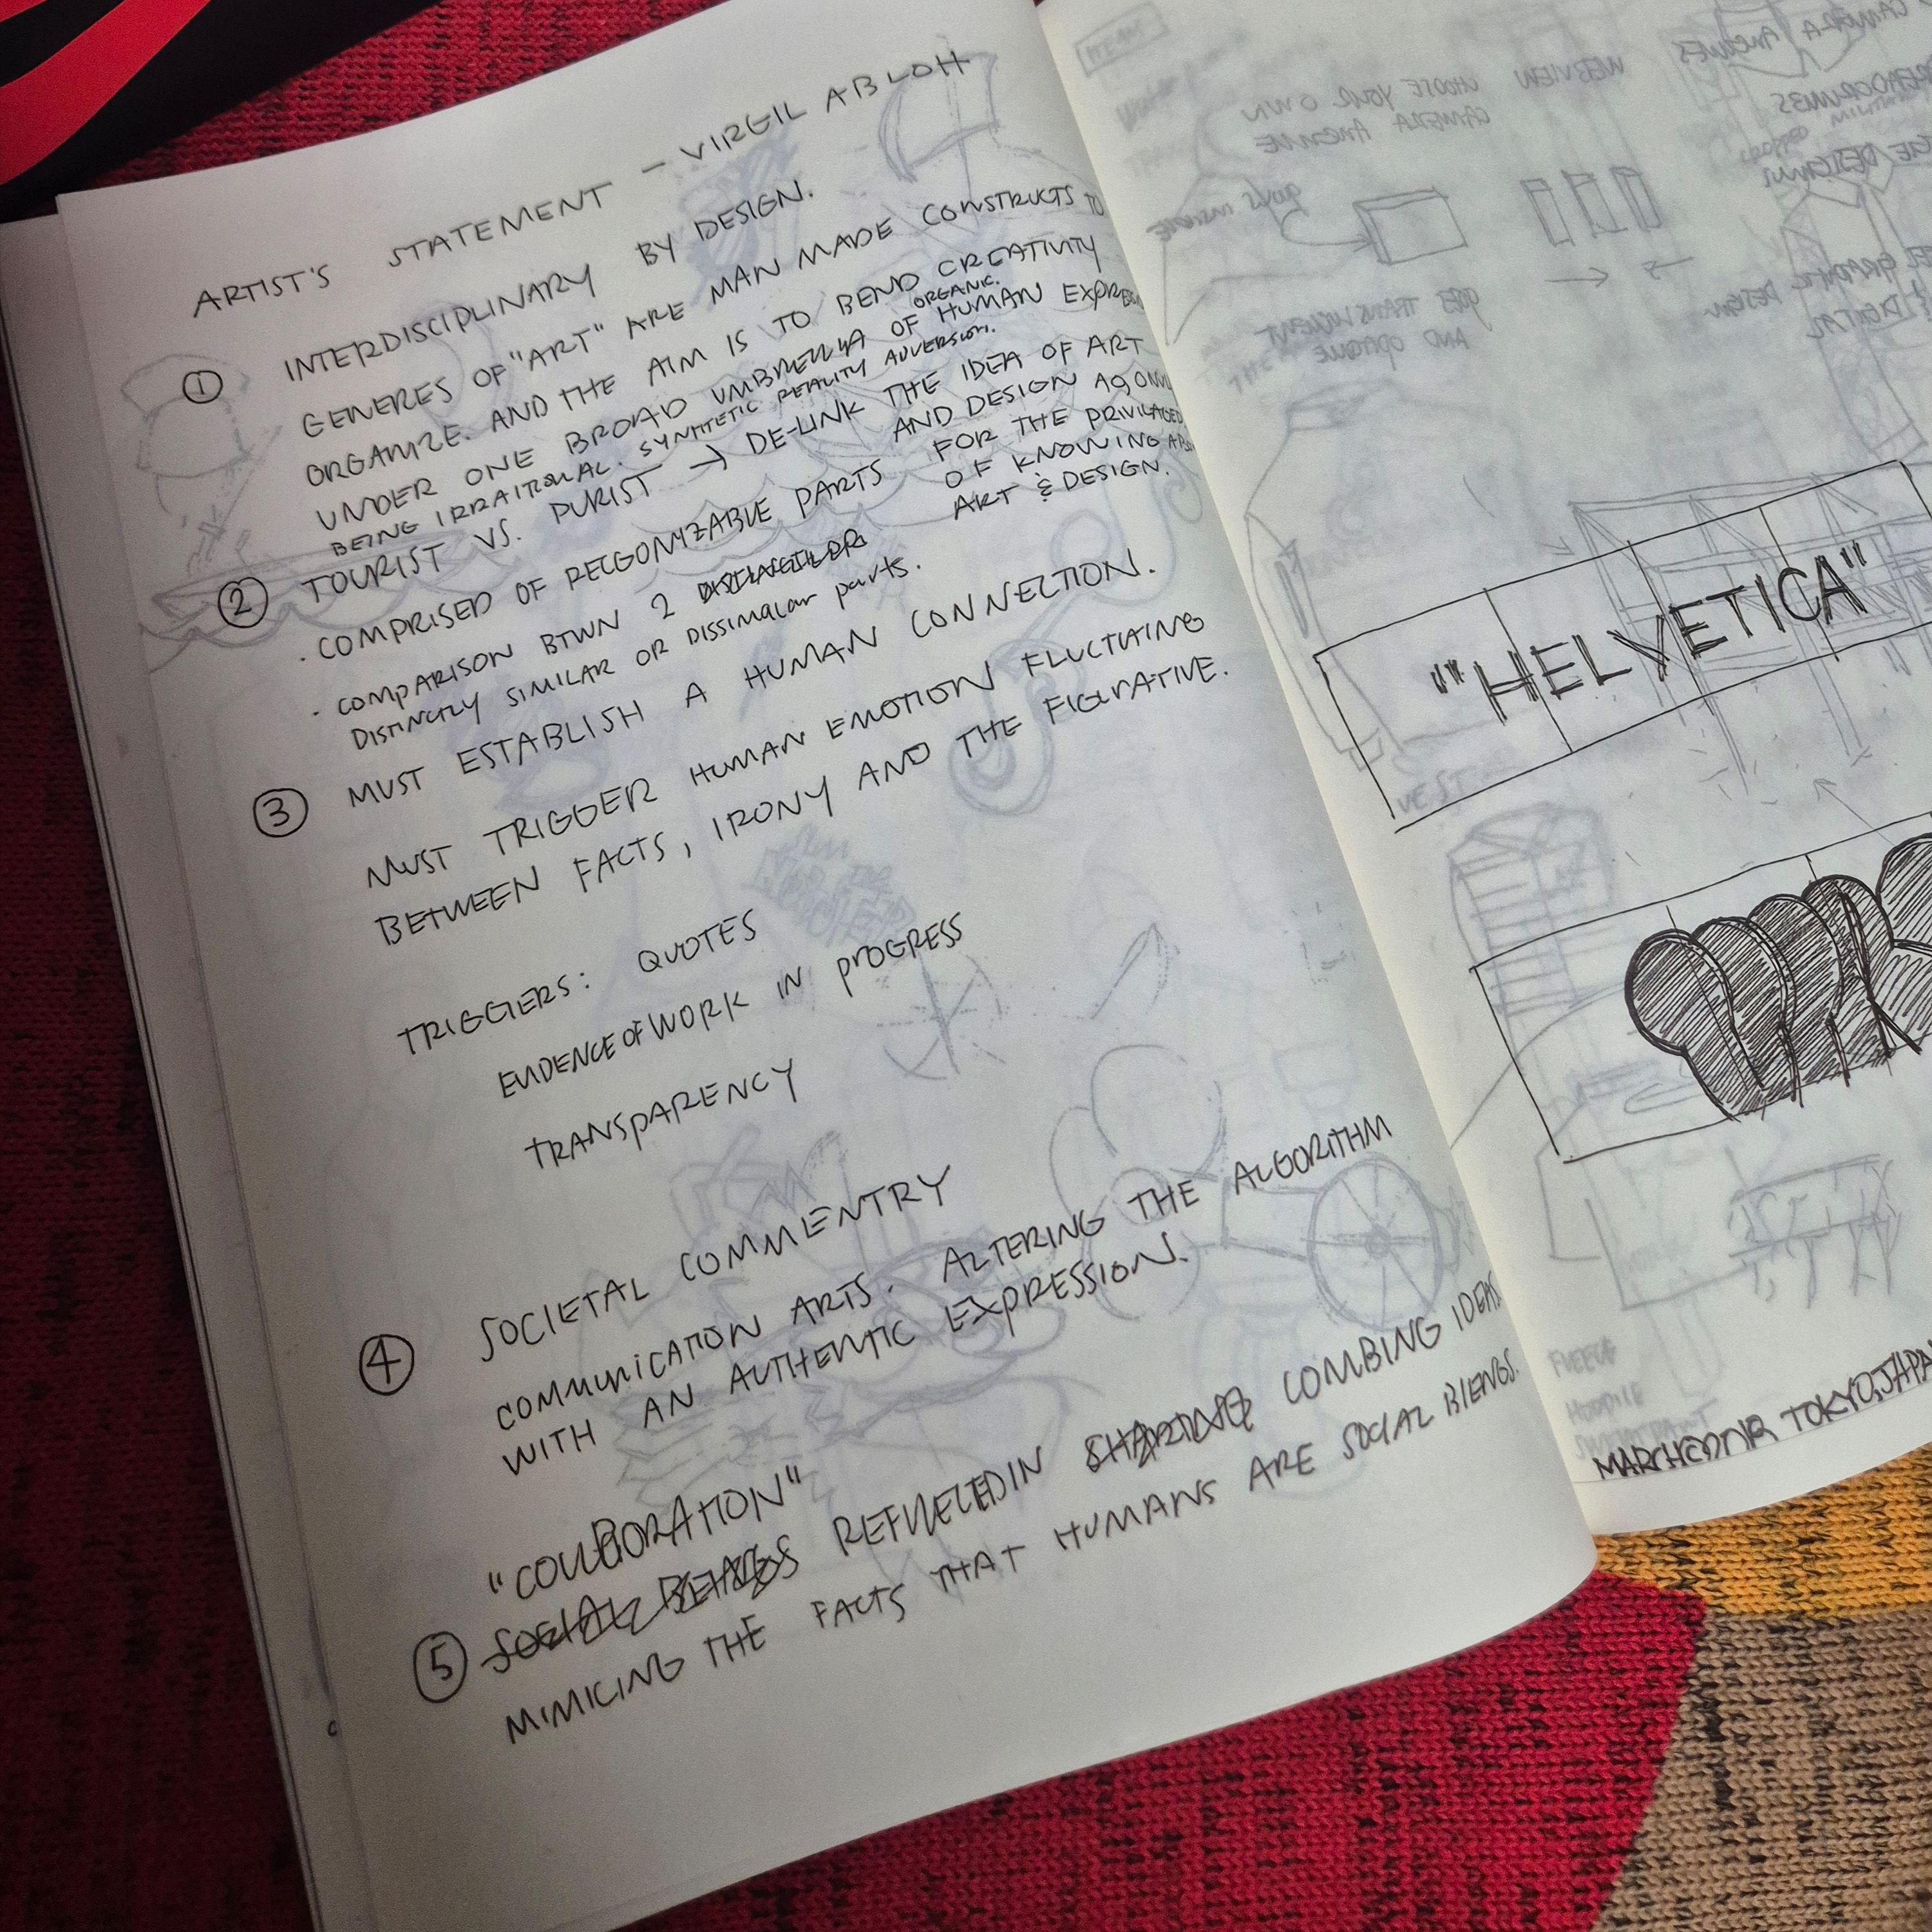 ARTIST'S STATEMENT – VIRGIL ABLOH
① INTERDISCIPLINARY BY DESIGN.
GENERES OF "ART" ARE MAN MADE CONSTRUCTS TO
ORGANIZE. AND THE AIM IS TO BEND CREATIVITY
UNDER ONE BROAD UMBRELLA OF HUMAN
ORGANIC.
BEING IRRAITONAL. SYNTHETIC REALITY ADVERSION.
② TOURIST VS. PURIST → DE-LINK THE IDEA OF ART
AND DESIGN
FOR THE
OF KNOWING
ART & DESIGN.
· COMPRISED OF RECGONIZABLE PARTS
· COMPARISON BTWN 2
DISTINCTLY SIMILAR OR DISSIMALAR parts.
③ MUST ESTABLISH A HUMAN CONNECTION.
MUST TRIGGER HUMAN EMOTION FLUCTUAING
BETWEEN FACTS, IRONY AND THE FIGURATIVE.
TRIGGERS: QUOTES
EVIDENCE OF WORK IN PROGRESS
TRANSPARENCY
④ SOCIETAL COMMENTRY
COMMUNICATION ARTS. ALTERING THE ALGORITHM
WITH AN AUTHENTIC EXPRESSION.
"COLLBORATION"
⑤ SOCIAL BEINGS REFLECTED IN SHARING COMBING IDEAS
MIMICING THE FACTS THAT HUMANS ARE SOCIAL BIENGS.
"HELVETICA"
VEST
FLEECE
HOODIE
TOKYO, JAPA